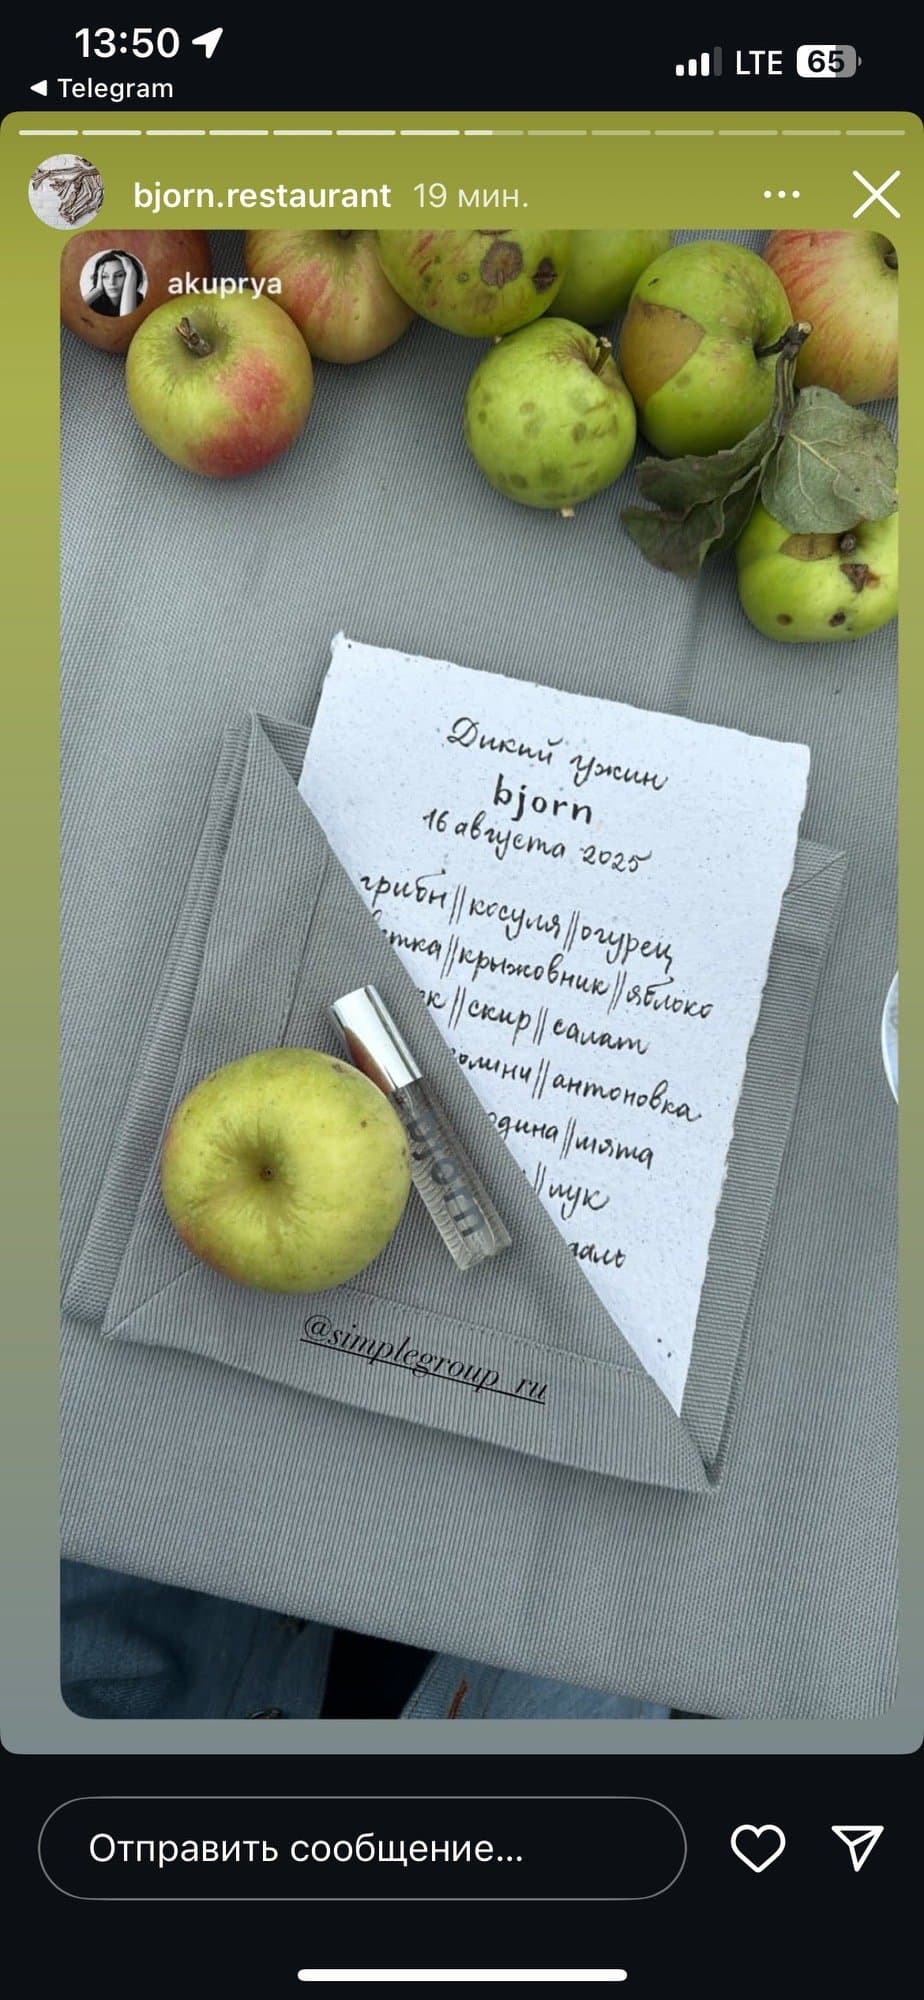 13:50
LTE 65
Telegram
bjorn.restaurant 19 мин.
akuprya
Дикий ужин
bjorn
16 августа 2025
грибы || косуля || огурец
|| крыжовник || яблоко
|| скир || салат
|| антоновка
|| мята
|| лук
bjorn
@simplegroup_ru
Отправить сообщение...